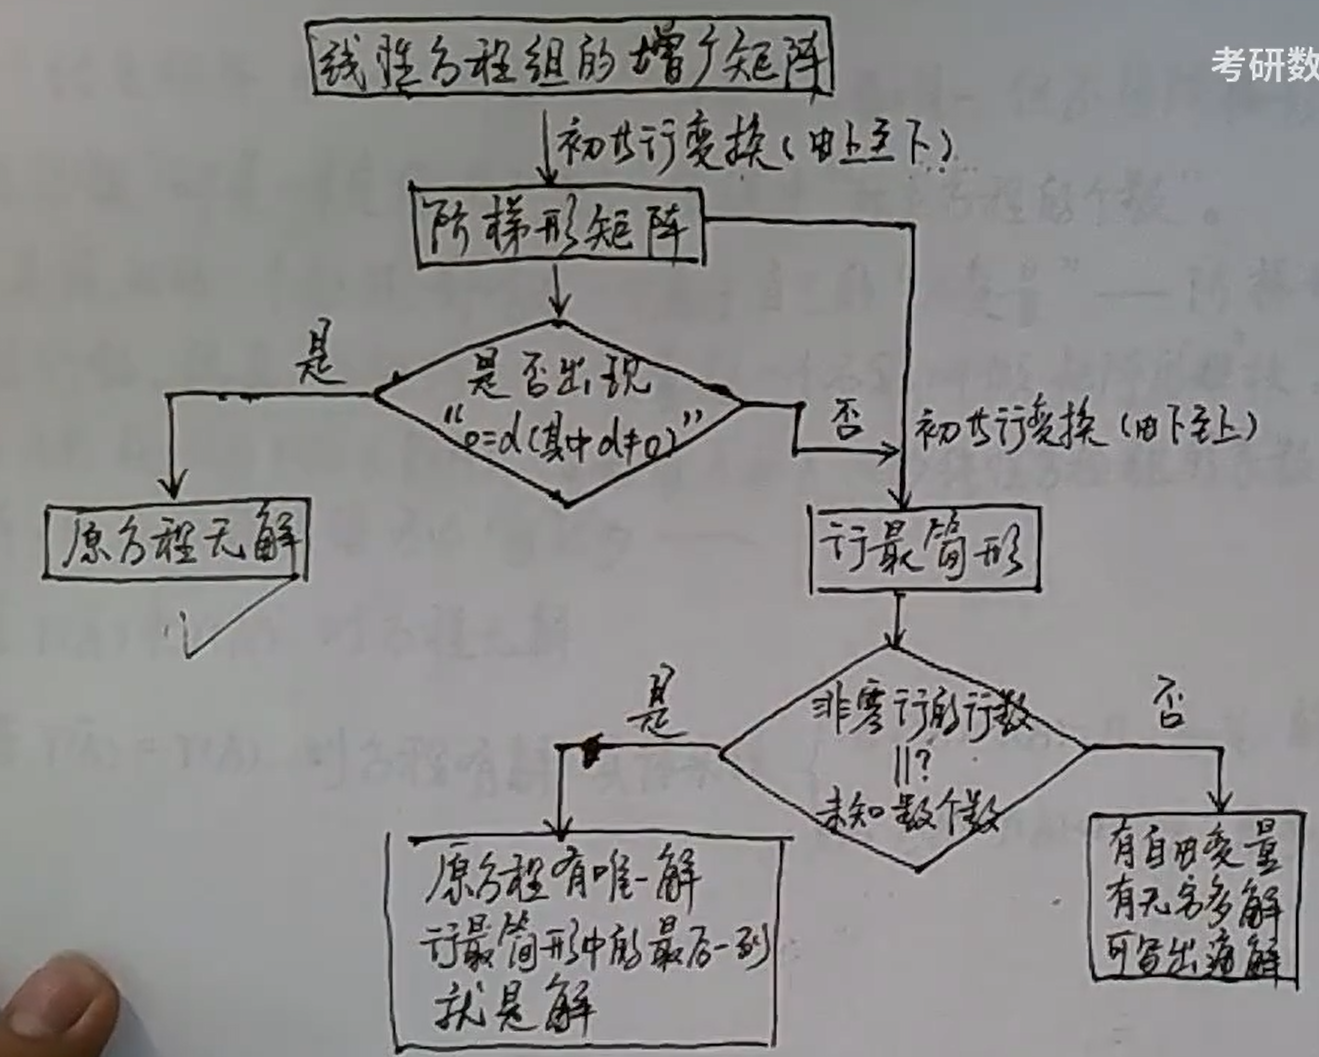 线性方程组的增广矩阵
考研数
初等行变换(由上至下)
阶梯形矩阵
是
是否出现
“0=d(其中d≠0)”
否
初等行变换(由下至上)
原方程无解
行最简形
是
非零行的行数
||?
未知数个数
否
原方程有唯一解
行最简形中的最后一列
就是解
有自由变量
有无穷多解
可写出通解